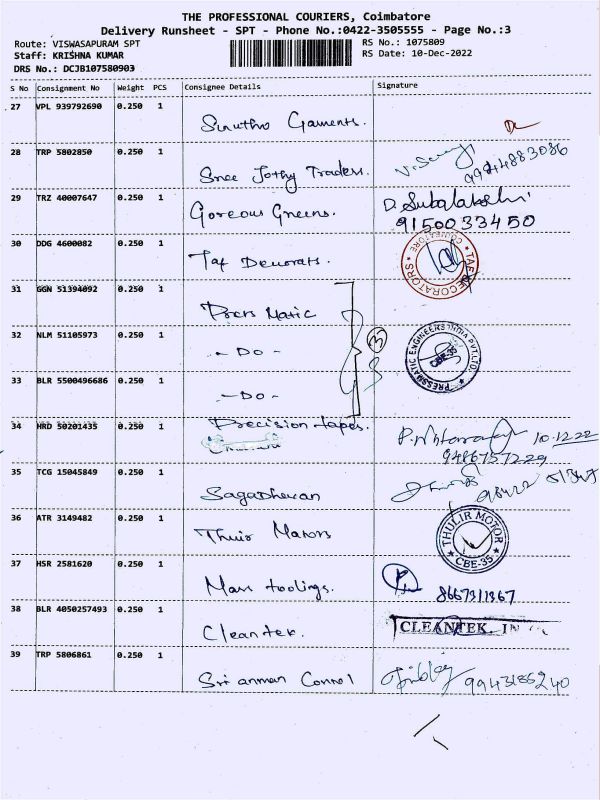 THE PROFESSIONAL COURIERS, Coimbatore
Delivery Runsheet - SPT - Phone No.:0422-3505555 - Page No.:3
Route: VISWASAPURAM SPT
RS No.: 1075809
Staff: KRISHNA KUMAR
RS Date: 10-Dec-2022
DRS No.: DCJB107580903
S No Consignment No Weight PCS Consignee Details Signature
27 VPL 939792690 0.250 1 Garments.
28 TRP 5802850 0.250 1 Sree Jothy Traders. 9944883086
29 TRZ 40007647 0.250 1 Goreous Greens. D. Subalakshmi
9150033450
30 DDG 4600082 0.250 1 Taf Decorats. TAF DECORATORS COIMBATORE
31 GGN 51394092 0.250 1 Press Matic
32 NLM 51105973 0.250 1 - Do - 3 PRESSMATIC ENGINEERS INDIA PVT.LTD. CBE-35
33 BLR 5500496686 0.250 1 - Do -
34 HRD 50201435 0.250 1 Precision tapes. 10.12.22
9486757229
35 TCG 15045849 0.250 1 Sagadhevan
36 ATR 3149482 0.250 1 Thulir Motors THULIR MOTOR CBE-35
37 HSR 2581620 0.250 1 Mars toolings. 8667311367
38 BLR 4050257493 0.250 1 Cleantek. CLEANTEK
39 TRP 5806861 0.250 1 Sri amman Connol 9943185240